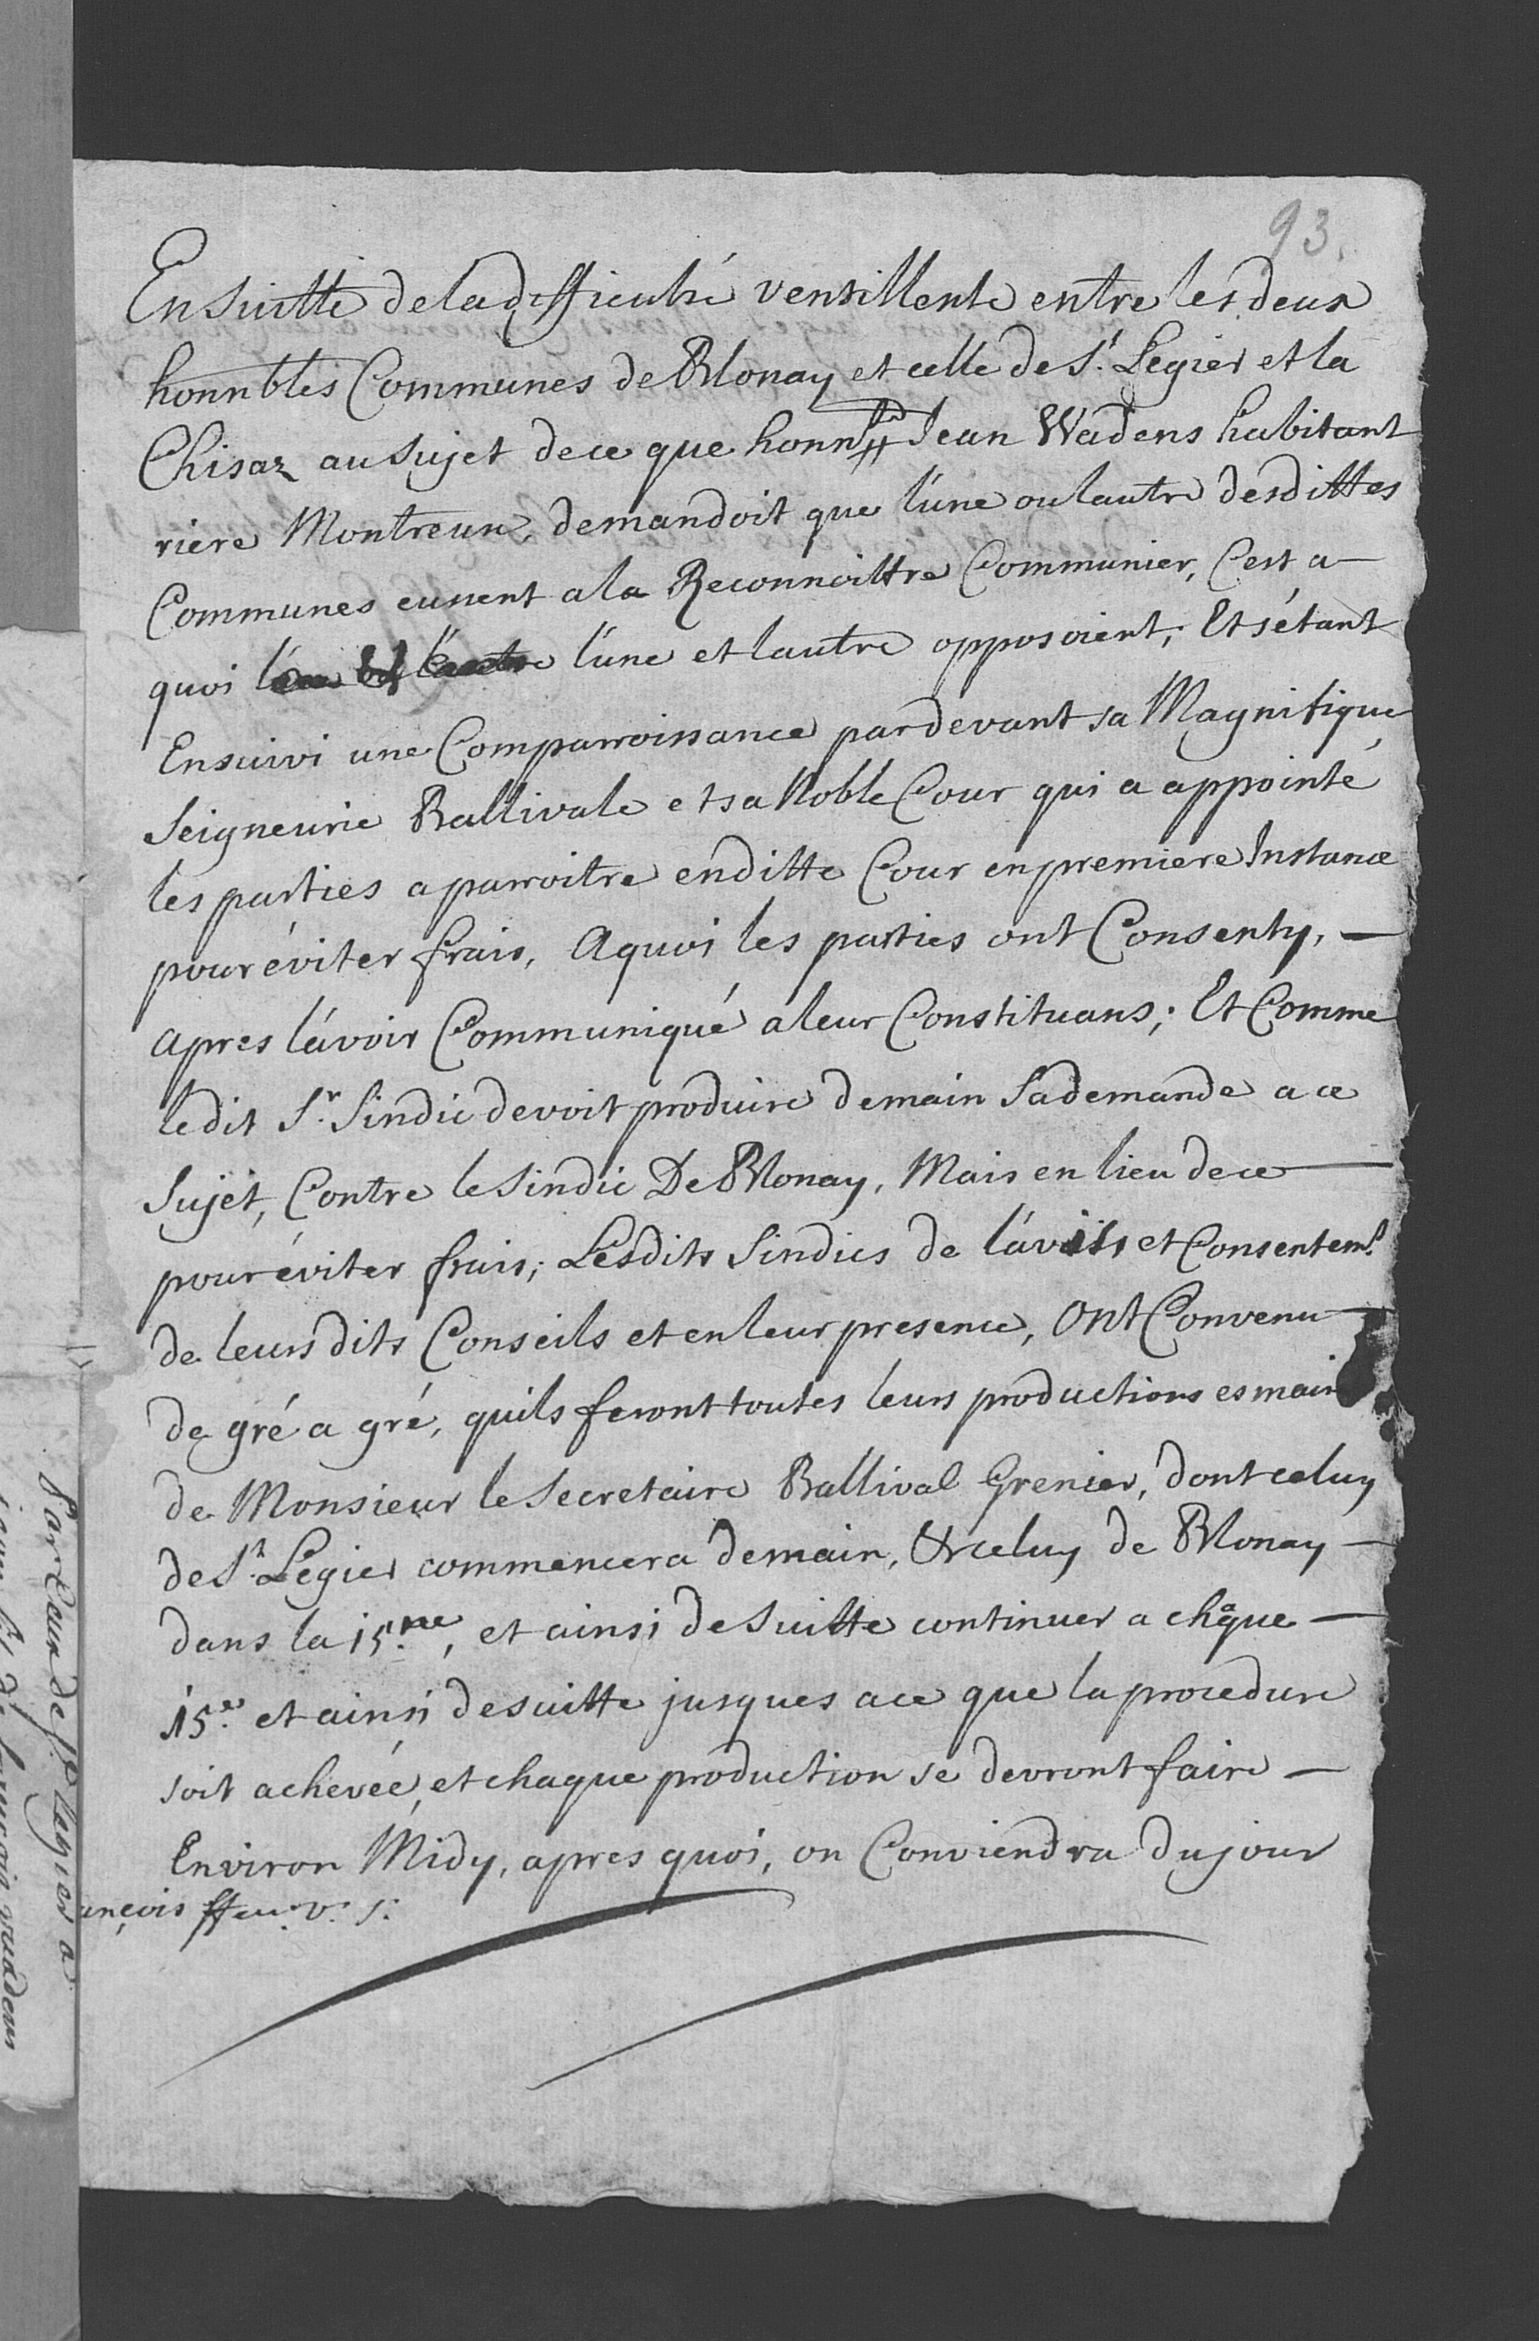 93.
Ensuitte de la difficulté ventillente entre les deux
honnbles Communes de Blonay et celle de St. Legier et la
Chisaz au sujet de ce que honn Jean Wadens habitant
riere Montreux, demandoit que l'une ou lautre desdittes
Communes eussent a la Reconnoittre Communier, C'est a
quoi l'une et lautre l'une et lautre opposoient; Et s'étant
Ensuivi une Comparroissance pardevant sa Magnifique
Seigneurie Ballivale et sa Noble Cour qui a appointé
les parties a parroitre en ditte Cour en premiere Instance
pour éviter frais, Aquoi les parties ont Consenty, —
apres l'avoir Communiqué a leur Constituans; Et Comme
ledit Sr. Sindic devoit produire demain Sa demande a ce
Sujet, Contre le Sindic De Blonay, Mais en lieu de ce —
pour éviter frais; Lesdits Sindics de l'avis et Consentemt.
de leurs dits Conseils et en leur presence, Ont Convenu —
de gré a gré, quils feront toutes leurs productions es main
de Monsieur le Secretaire Ballival Grenier, dont celuy
de St. Legier commencera demain, & celuy de Blonay —
dans la 15.ne, et ainsi de Suitte continuer a chaque —
15.e et ainsi de suitte jusques a ce que la procedure
soit achevée, et chaque production se devront faire —
Environ Midy, apres quoi, on Conviendra du jour
ançois ffeu. v. s.
Par Cour de St. Legier a
vuadens